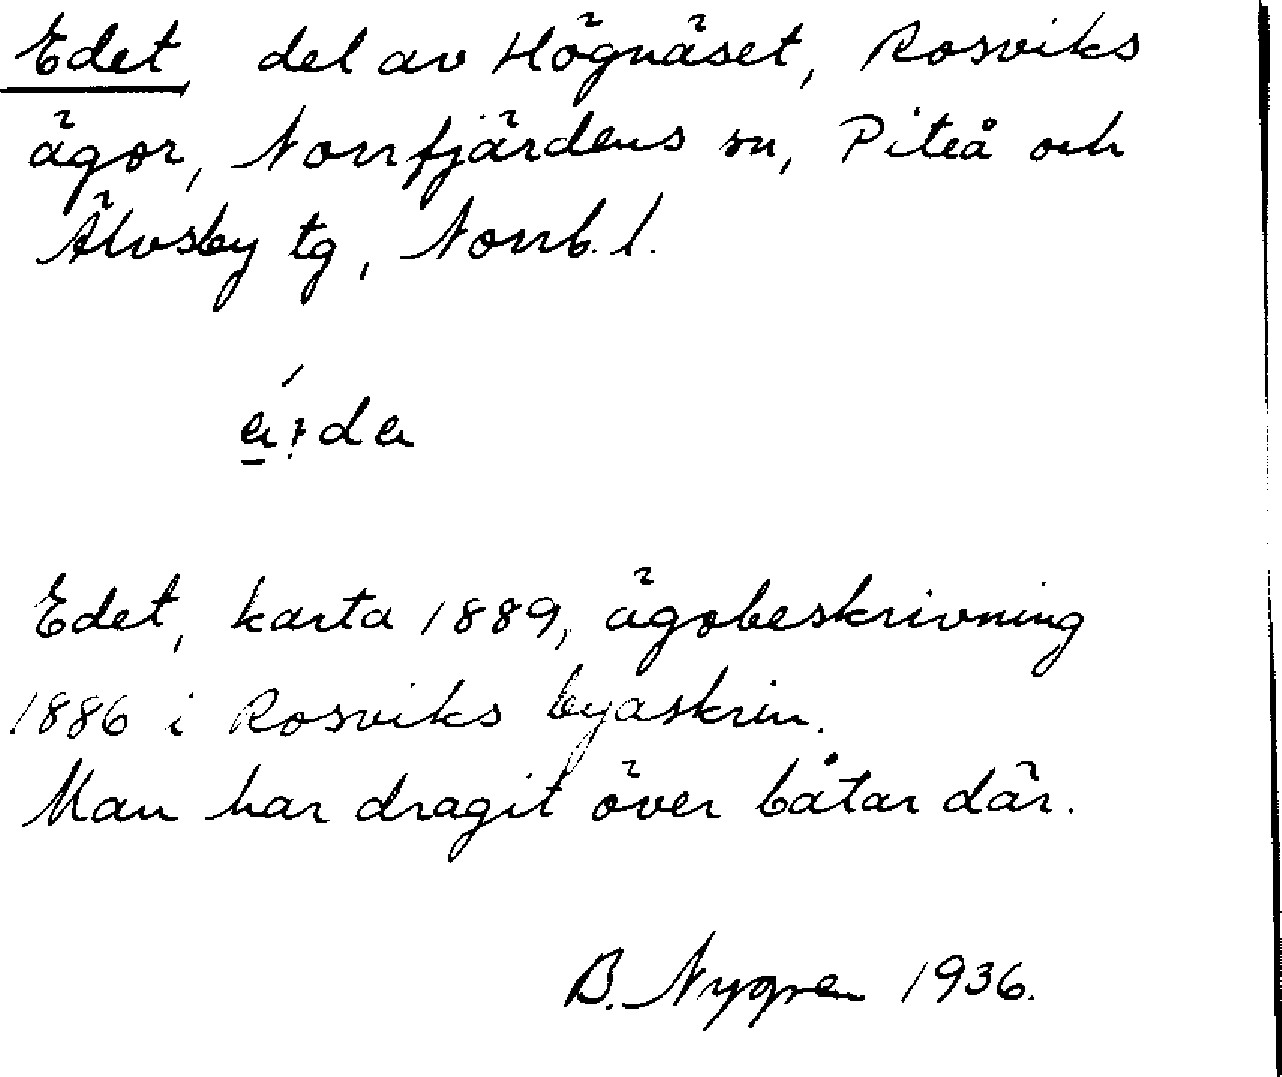 Edet, del av Högnäset, Rosviks
ägor, Norrfjärdens sn, Piteå och
Älvsby tg, Norrb. l.
Edet, karta 1889, ägobeskrivning
1886 i Rosviks byaskrin.
Man har dragit över båtar där.
B. Nygren 1936.